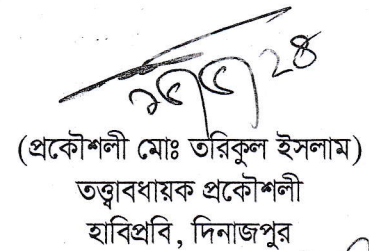 (প্রকৌশলী মোঃ তরিকুল ইসলাম)
তত্ত্বাবধায়ক প্রকৌশলী
হাবিপ্রবি, দিনাজপুর